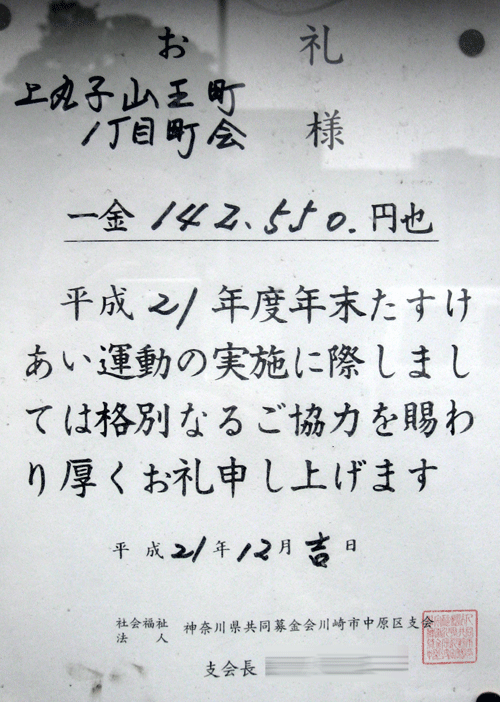 お礼
上丸子山王町
1丁目町会 様
一金 142,550.円也
平成21年度年末たすけ
あい運動の実施に際しまし
ては格別なるご協力を賜わ
り厚くお礼申し上げます
平成21年12月吉日
社会福祉
法人
神奈川県共同募金会川崎市中原区支会
支会長